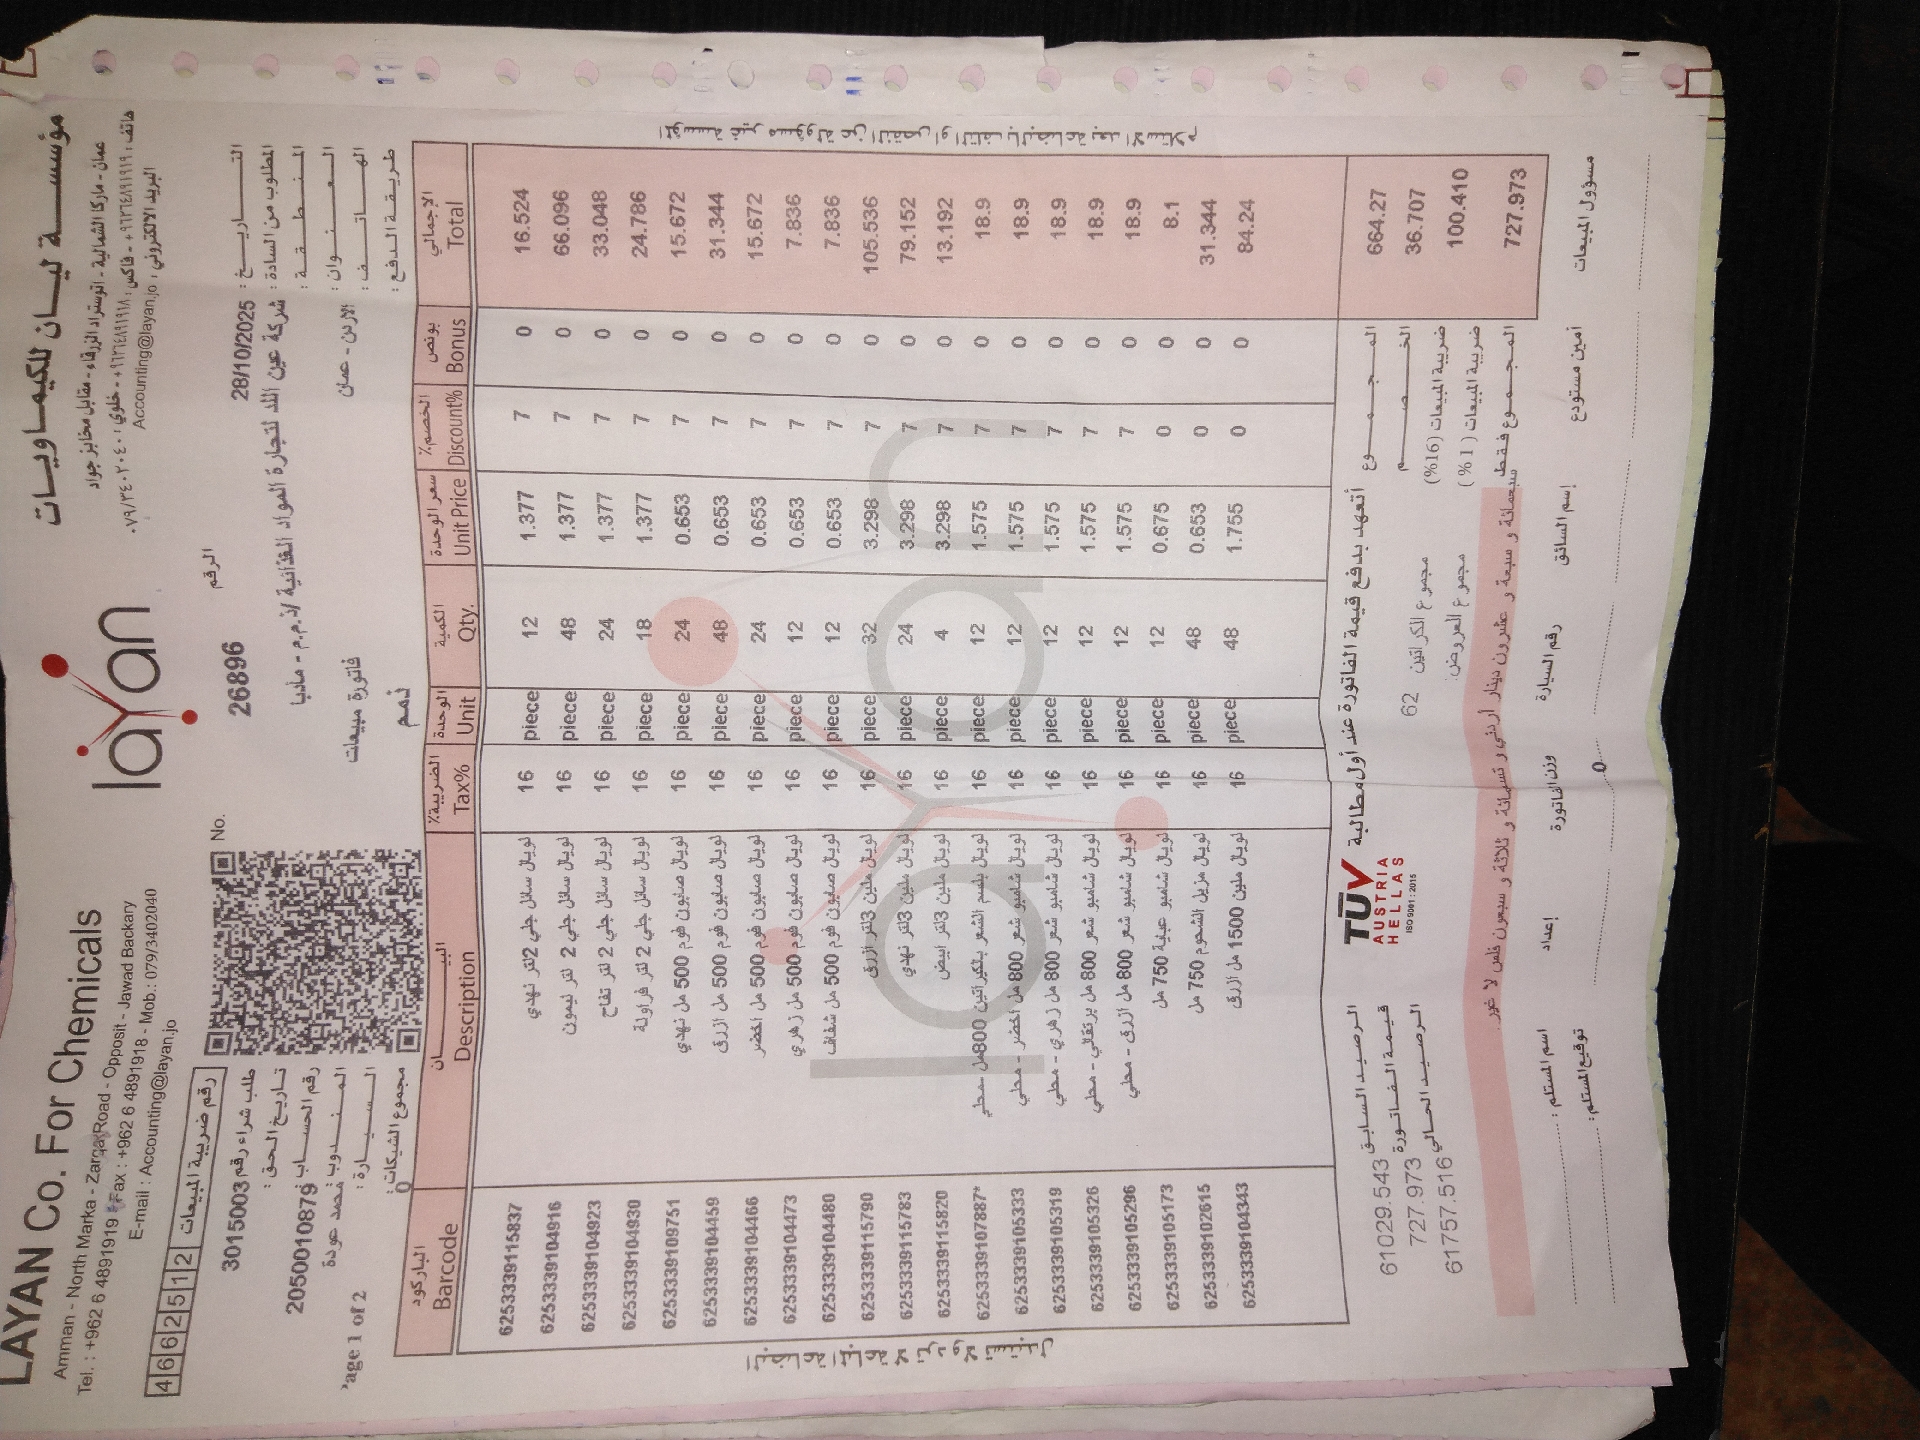 LAYAN Co. For Chemicals
Amman - North Marka - Zarqa Road - Opposit - Jawad Backary
Tel. : +962 6 4891919 Fax : +962 6 4891918 - Mob.: 079/3402040
E-mail : Accounting@layan.jo
layan
مؤسسة ليان للكيماويات
عمان - ماركا الشمالية - اتوستراد الزرقاء - مقابل مخابز جواد
هاتف : ٩٦٢٦٤٨٩١٩١٩+ - فاكس : ٩٦٢٦٤٨٩١٩١٨+ - خلوي : ٠٧٩/٣٤٠٢٠٤٠
البريد الالكتروني : Accounting@layan.jo
رقم ضريبة المبيعات 4662512
No. 26896 الرقم
طلب شراء رقم 3015003
تاريخ الحق :
رقم الحساب 2050010879
المندوب محمد عودة
السيارة :
مجموع الشيكات : 0
'age 1 of 2
التاريخ : 28/10/2025
المطلوب من السادة : شركة عين اللد لتجارة المواد الغذائية ذ.م.م - مادبا
المنطقة :
العنوان : الاردن - عمان
الهاتف :
طريقة الدفع :
فاتورة مبيعات
ذمم
الباركود البيان الضريبة% الوحدة الكمية سعر الوحدة الخصم% بونص الإجمالي
Barcode Description Tax% Unit Qty. Unit Price Discount% Bonus Total
6253339115837 لويال سائل جلي 2لتر نهدي 16 piece 12 1.377 7 0 16.524
6253339104916 لويال سائل جلي 2 لتر ليمون 16 piece 48 1.377 7 0 66.096
6253339104923 لويال سائل جلي 2 لتر تفاح 16 piece 24 1.377 7 0 33.048
6253339104930 لويال سائل جلي 2 لتر فراولة 16 piece 18 1.377 7 0 24.786
6253339109751 لويال صابون فوم 500 مل نهدي 16 piece 24 0.653 7 0 15.672
6253339104459 لويال صابون فوم 500 مل ازرق 16 piece 48 0.653 7 0 31.344
6253339104466 لويال صابون فوم 500 مل اخضر 16 piece 24 0.653 7 0 15.672
6253339104473 لويال صابون فوم 500 مل زهري 16 piece 12 0.653 7 0 7.836
6253339104480 لويال صابون فوم 500 مل شفاف 16 piece 12 0.653 7 0 7.836
6253339115790 لويال ملين 3لتر ازرق 16 piece 32 3.298 7 0 105.536
6253339115783 لويال ملين 3لتر نهدي 16 piece 24 3.298 7 0 79.152
6253339115820 لويال ملين 3لتر ابيض 16 piece 4 3.298 7 0 13.192
6253339107887* لويال بلسم الشعر بالكيراتين 800مل -محلي 16 piece 12 1.575 7 0 18.9
6253339105333 لويال شامبو شعر 800 مل اخضر - محلي 16 piece 12 1.575 7 0 18.9
6253339105319 لويال شامبو شعر 800 مل زهري - محلي 16 piece 12 1.575 7 0 18.9
6253339105326 لويال شامبو شعر 800 مل برتقالي - محلي 16 piece 12 1.575 7 0 18.9
6253339105296 لويال شامبو شعر 800 مل ازرق - محلي 16 piece 12 1.575 7 0 18.9
6253339105173 لويال شامبو عبية 750 مل 16 piece 12 0.675 0 0 8.1
6253339102615 لويال مزيل الشحوم 750 مل 16 piece 48 0.653 0 0 31.344
6253339104343 لويال ملين 1500 مل ازرق 16 piece 48 1.755 0 0 84.24
البضاعة المباعة لا ترد ولا تستبدل
المؤسسة غير مسؤولة عن النقص او التلف بالبضاعة بعد الاستلام
أتعهد بدفع قيمة الفاتورة عند أول مطالبة
TÜV
AUSTRIA
HELLAS
ISO 9001 : 2015
الرصيد السابق 61029.543
قيمة الفاتورة 727.973
الرصيد الحالي 61757.516
مجموع الكراتين 62
مجموع العروض:
المجموع 664.27
الخصم 36.707
ضريبة المبيعات (16%) 100.410
ضريبة المبيعات (1 %)
المجموع 727.973
فقط سبعمائة و سبعة و عشرون دينار أردني و تسعمائة و ثلاثة و سبعون فلس لا غير
اسم المستلم : إعداد وزن الفاتورة رقم السيارة إسم السائق أمين مستودع مسؤول المبيعات
توقيع المستلم : 0